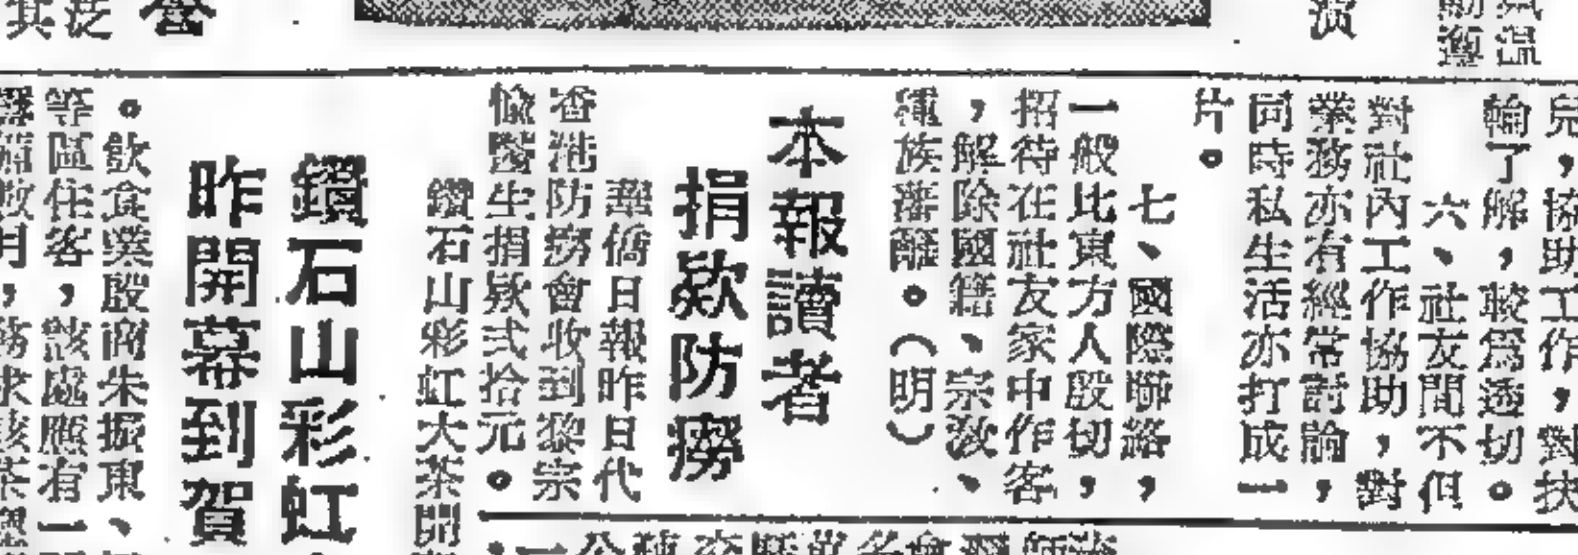 兒，協助工作，對扶
輪了解，較爲透切。
六、社友間不但
對社內工作協助，對
業務亦有經常討論，
同時私生活亦打成一
片。
七、國際聯絡，
一般比東方人殷切，
招待在社友家中作客
，解除國籍、宗敎、
種族藩離。（明）
本報讀者
捐欵防癆
華僑日報昨日代
香港防癆會收到黎宗
愉醫生捐欵弍拾元。
鑽石山彩虹
昨開幕到賀
鑽石山彩虹大茶開
。飲食業殷商朱振東、
等區住客，該處應有一